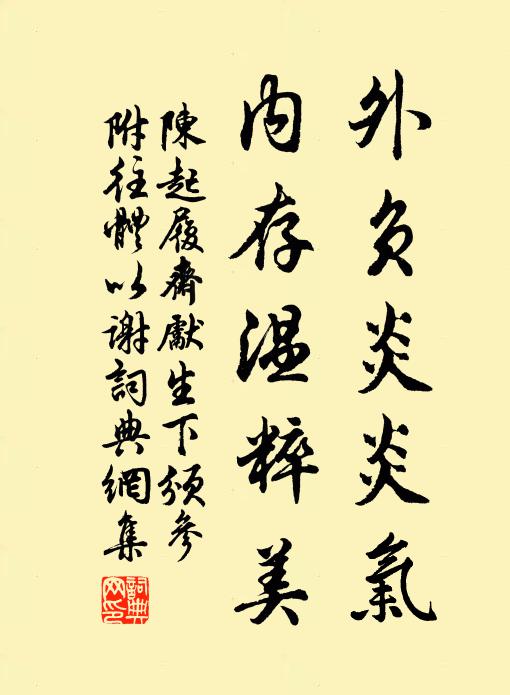 外负炎炎氣
内存温粹美
陳起履齋獻生下頒參
附往體以謝詞典網集
詞典
网印